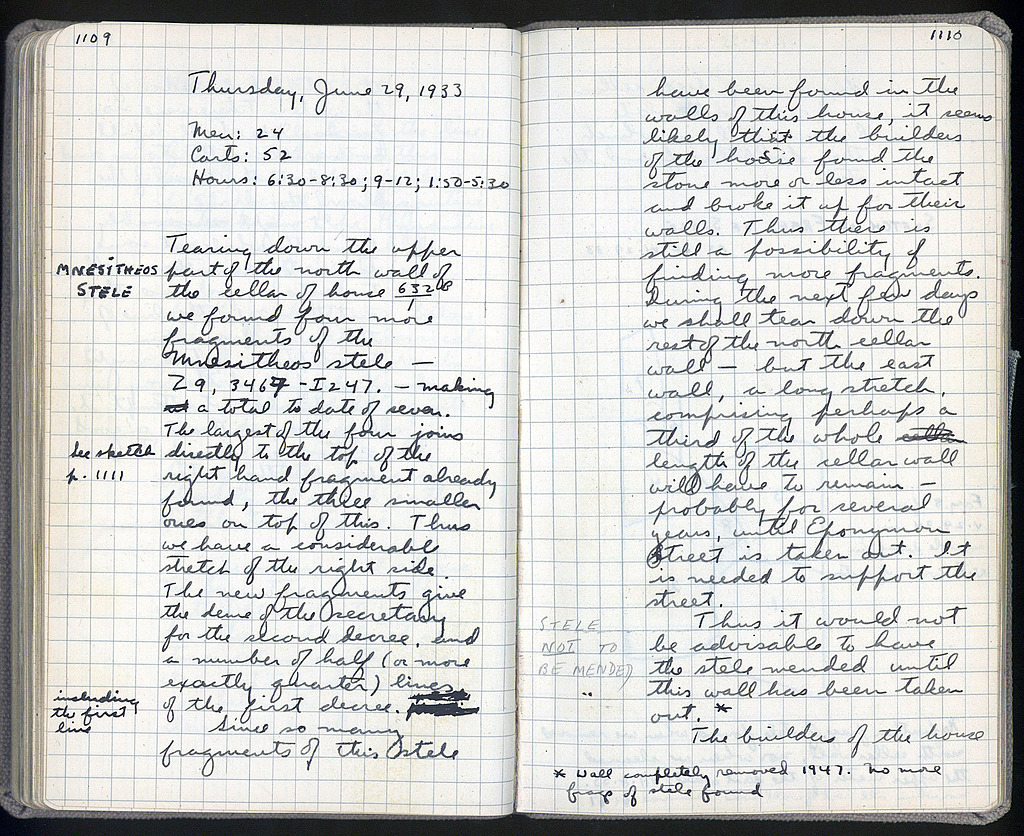 1109
Thursday, June 29, 1933
Men: 24
Carts: 52
Hours: 6:30-8:30; 9-12; 1:50-5:30
MNESITHEOS
STELE
Tearing down the upper
part of the north wall of
the cellar of house 632
we found four more
fragments of the
Mnesitheos stele –
Z 9, 3467 - I 247. – making
a total to date of seven.
The largest of the four joins
See sketch
p. 1111
directly to the top of the
right hand fragment already
found, the three smaller
ones on top of this. Thus
we have a considerable
stretch of the right side.
The new fragments give
the deme of the secretary
for the second decree, and
a number of half (or more
exactly quarter) lines
including
the first
line
of the first decree.
Since so many
fragments of this stele
1110
have been found in the
walls of this house, it seems
likely that the builders
of the house found the
stone more or less intact
and broke it up for their
walls. Thus there is
still a possibility of
finding more fragments.
During the next few days
we shall tear down the
rest of the north cellar
wall – but the east
wall, a long stretch,
comprising perhaps a
third of the whole
length of the cellar wall
will have to remain –
probably for several
years, until Eponymon
Street is taken out. It
is needed to support the
street.
STELE
NOT TO
BE MENDED
"
Thus it would not
be advisable to have
the stele mended until
this wall has been taken
out. *
The builders of the house
* Wall completely removed 1947. No more
frags of stele found